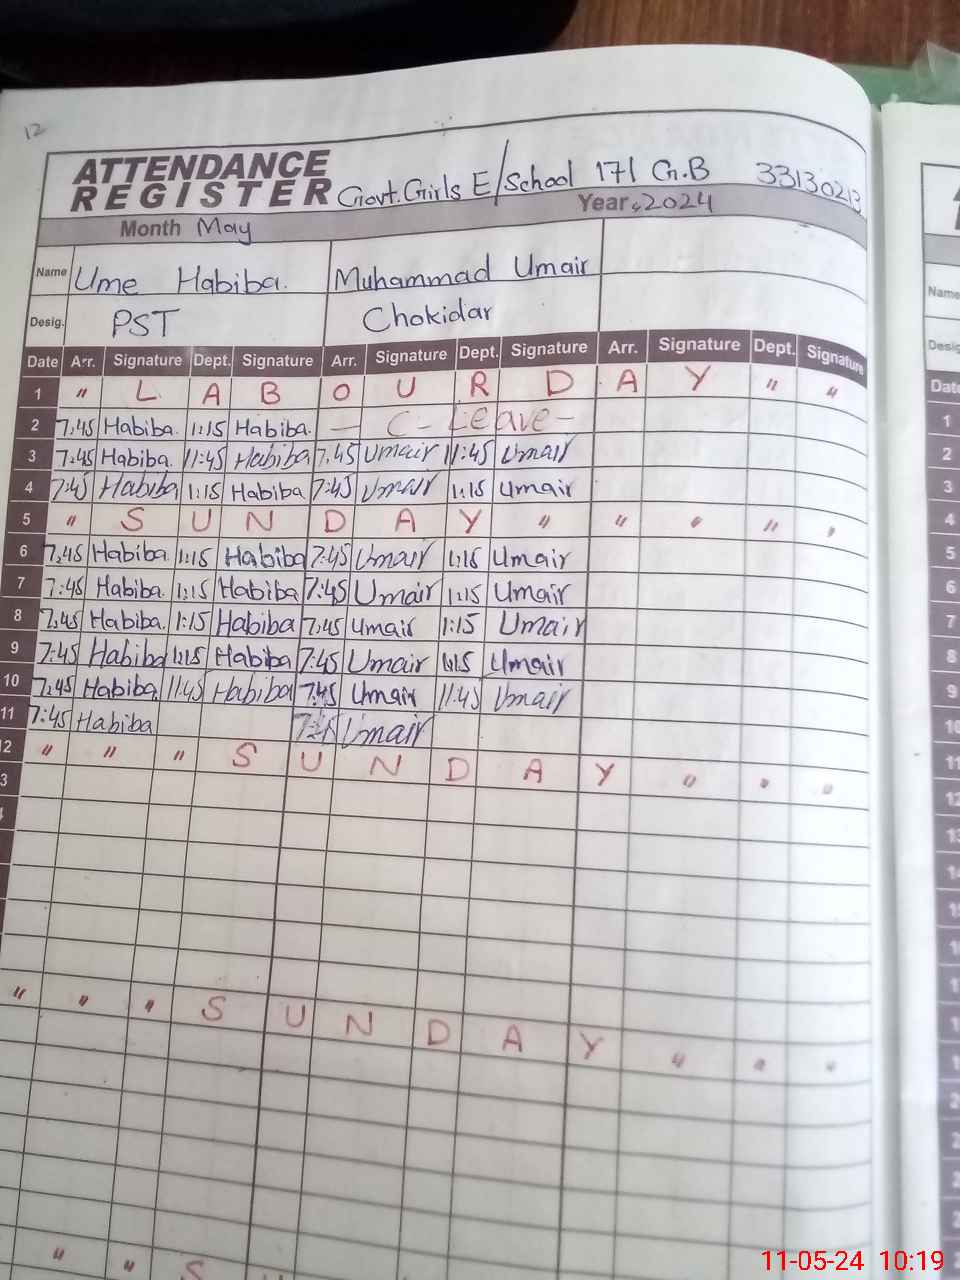 12
ATTENDANCE
REGISTER Govt. Girls E/School 171 G.B 33130213
Month May Year, 2024
Name Ume Habiba. Muhammad Umair
Desig. PST Chokidar
Date Arr. Signature Dept. Signature Arr. Signature Dept. Signature Arr. Signature Dept. Signature
1 " L A B O U R D A Y " "
2 7:45 Habiba. 1:15 Habiba. — C- Leave -
3 7:45 Habiba. 11:45 Habiba 7:45 Umair 11:45 Umair
4 7:45 Habiba 1:15 Habiba 7:45 Umair 1:15 Umair
5 " S U N D A Y " " " " "
6 7:45 Habiba. 1:15 Habiba 7:45 Umair 1:15 Umair
7 7:45 Habiba. 1:15 Habiba 7:45 Umair 1:15 Umair
8 7:45 Habiba. 1:15 Habiba 7:45 Umair 1:15 Umair
9 7:45 Habiba 1:15 Habiba 7:45 Umair 1:15 Umair
10 7:45 Habiba 11:45 Habiba 7:45 Umair 11:45 Umair
11 7:45 Habiba 7:45 Umair
2 " " " S U N D A Y " " "
3
" " " S U N D A Y " " "
" " S
Name
Desig
Date
1
2
3
4
5
6
7
8
9
10
11
12
11-05-24 10:19